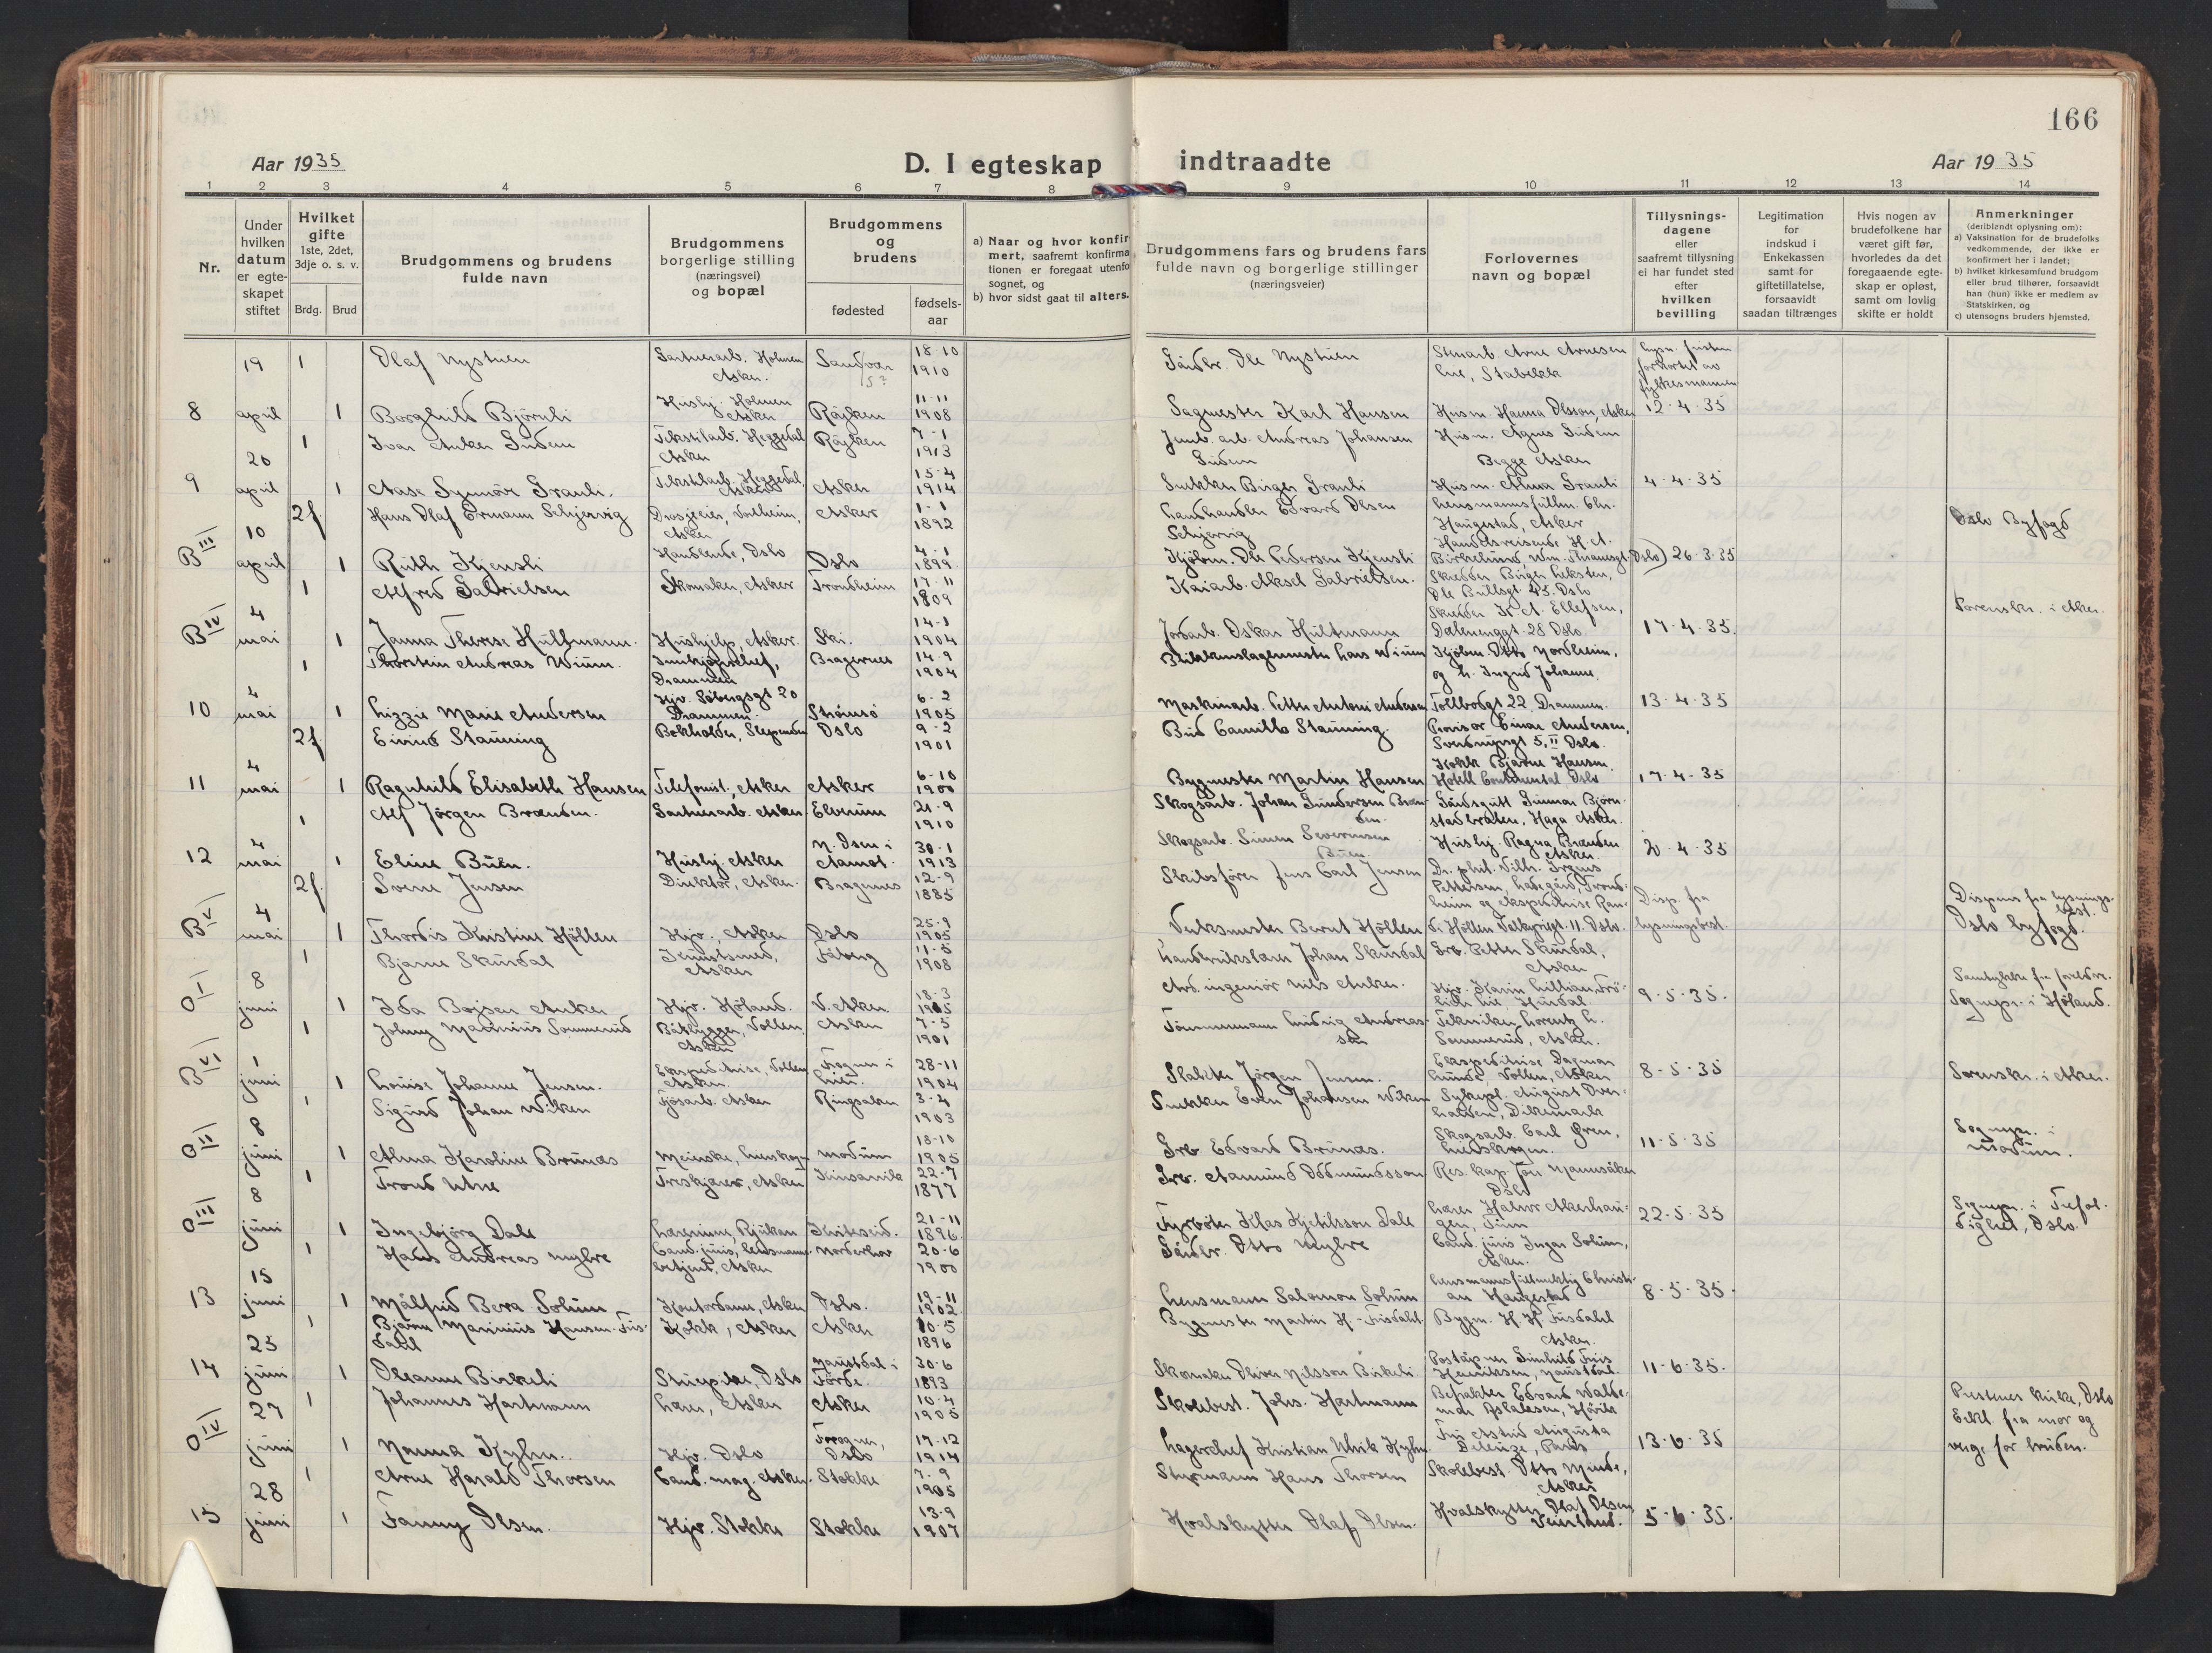 166
Aar 1935
D. I egteskap indtraadte
Aar 1935
1 2 3 4 5 6 7 8 9 10 11 12 13 14
Nr.
Under hvilken datum er egteskapet stiftet
Hvilket gifte 1ste, 2det, 3dje o. s. v.
Brdg. Brud
Brudgommens og brudens fulde navn
Brudgommens borgerlige stilling (næringsvei) og bopæl
Brudgommens og brudens
fødested
fødsels-aar
a) Naar og hvor konfir
mert, saafremt konfirma
tionen er foregaat utenfo
sognet, og
b) hvor sidst gaat til alters.
Brudgommens fars og brudens fars fulde navn og borgerlige stillinger (næringsveier)
Forlovernes navn og bopæl
Tillysnings-dagene eller saafremt tillysning ei har fundet sted efter hvilken bevilling
Legitimation for indskud i Enkekassen samt for giftetillatelse, forsaavidt saadan tiltrænges
Hvis nogen av brudefolkene har været gift før, hvorledes da det foregaaende egteskap er opløst, samt om lovlig skifte er holdt
Anmerkninger (deriblandt oplysning om):
a) Vaksination for de brudefolks vedkommende, der ikke er konfirmert her i landet;
b) hvilket kirkesamfund brudgom eller brud tilhører, forsaavidt han (hun) ikke er medlem av Statskirken, og
c) utensogns bruders hjemsted.
19 1 Olaf Nystuen Holmen Asker. 18-10 1910 Gårdbr. Ole Nystuen Arne Arnesen Lie, Stabekk
8 april 1 Borghild Bjørnli Hushj. Holmen Asker Røyken 11-11 1908 Sagmester Karl Hansen Husm. Hanna Olsson, Asker 12-4-35
20 1 Ivar Anker Gudem Tekstilarb. Heggedal Asker Røyken 7-1 1913 Jernb. arb. Andreas Johansen Gudem Husm. Agnes Gudem Begge Asker
9 april 1 Aase Synnöve Granli. Tekstilarb. Heggedal, Asker Asker 15-4 1914 Snekker Birger Granli Husm. Alma Granli 4-4-35
10 2f Hans Olaf Ermann Schjervig Drosjeeier, Asker Asker 1-1 1892 Landhandler Edvard Olsen Schjervig Lensmannsfullm. Chr. Haugestad, Asker Oslo Byfogd
B III april 1 Ruth Kjensli Handlende, Oslo Oslo 4-1 1899 Kjöbm. Ole Pedersen Kjensli Handelsreisende H. A. Birkelund Oslo) 26-3-35
4 1 Alfred Gabrielsen Skomaker, Asker Trondheim 17-11 1909 Kaiarb. Aksel Gabrielsen. Skredder Birger Leksten, Ole Bullsgt. 43. Oslo
B IV mai 1 Janna Therese Hultmann. Hushjelp, Asker. Ski. 14-1 1904 Jordarb. Oskar Hultmann Skredder K. A. Ellefsen, Dælenenggt. 28 Oslo 17-4-35. Sorenskr. i Aker.
4 1 Thorstein Andreas Wium. Innkjøpschef, Drammen Bragernes 14-9 1904 Blikkenslagermester Lars Wium Kjöbm. Otto Nordheim, og h. Ingrid Johanne,
10 mai 1 Lizzie Marie Andersen Hjv. Söbergsgt 20 Drammen. Strömsö 6-2 1905 Maskinarb. Petter Antoni Andersen Tollbodgt 22 Drammen. 13-4-35
4 2f Eivind Stanning Bokholder, Slependen Oslo 9-2 1901 Bud Camillo Stanning. Provisor Einar Andersen, Sverdrupsgt 5, II Oslo.
11 mai 1 Ragnhild Elisabeth Hansen Telefonist, Asker Asker 6-10 1900 Bygmester Martin Hansen Kokk Bjarne Hansen. Hotell Continental, Oslo 17-4-35
4 1 Alf Jørgen Brænden. Gartnerarb. Asker. Elverum 21-9 1910 Skogsarb. Johan Gundersen Brænden. Gårdsgutt Gunnar Björnstadbråten, Haga Asker.
12 mai 1 Eline Buen. Hushj. Asker N. Osen i Åmot. 30-1 1913 Skogsarb. Simen Severinsen Buen. Hushj. Ragna Brænden Asker. 20-4-35
4 2f. Sverre Jensen Direktör, Asker. Bragernes 12-9 1885 Skibsfører Jens Carl Jensen Dr. phil. Vilh. Irgens Pettersen, Ladegård, Trondheim og ekspeditrise Ran- Disp. fra
B V mai 1 Thordis Kristine Höllen Hjv., Asker Oslo 25-9 1905 Verksmester Bernt Höllen di Höllen Valkyrjegt. 11. Oslo. lysningsbest. Dispens fra lysningsbest. Oslo byfogd.
8 1 Bjarne Skurdal Kunstsmed, Asker Fåberg 11-5 1908 Landbrukslærer Johan Skurdal Grb. Petter Skurdal, Asker
O I juni 1 Ida Bojsen Anker Hjv. Höland. V. Aker 18-3 1905 Avd. ingeniör Nils Anker. Hjv. Karin Lillian Frölich Lie Hurdal. 9-5-35. Samtykke fra foreldre. Sognepr. i Höland.
1 1 Johny Marinius Sommerud Båtbygger, Vollen, Asker Asker 7-5 1901 Tömmermann Ludvig Andreassen Tekniker Lorentz L. Sommerud, Asker.
B VI juni 1 Louise Johanne Jensen. Ekspeditrise, Vollen Asker. Frogner i Lier. 28-11 1904 Slakter Jörgen Jensen. Ekspeditrise Dagmar Lunde, Vollen, Asker 8-5-35 Sorenskr. i Aker.
8 1 Sigurd Johan Wiken Fjösarb. Asker Ringsaker 3-4 1903 Snekker Even Johansen Wiken Sykepl. August Overhalden, Dikemark
O II juni 1 Alma Karoline Brunæs Meierske, Lierskogn Modum 18-10 1905 Grb Edvard Brunæs. Skogsarb. Carl Øren, Lierskogen. 11-5-35 Sognepr. i Modum.
8 1 Trond Utne Asker Kinsarvik 22-7 1877 Grb. Aamund Oddmundsson Res. kap. Jon Mannsåker Oslo
O III juni 1 Ingebjörg Dale Lærerinne, Rjukan Kviteseid. 21-11 1896. Fyrböter Klas Kjetilsson Dale Lærer Halvor Akerhaugen, Tinn 22-5-35 Sognepr. i Trefoldighet, Oslo.
15 1 Hans Andreas Myhre Cand. juris, lensmannsbetjent, Asker Norderhov 20-6 1900 Gårdbr. Otto Myhre Cand. juris Ingar Solum, Asker.
13 juni 1 Målfrid Bera Solum Kontordame, Asker Oslo. 19-11 1902 Lensmann Salomon Solum Lensmannsfullmektig Christian Haugestad 8-5-35.
25 1 Bjarne Marinius Hansen-Frisdahl Kokk, Asker Asker 10-5 1896 Bygmester Martin H.-Frisdahl. Bygm. H. H. Frisdahl Asker.
14 juni 1 Oleanne Birkeli Stuepike, Oslo Naustdal i Förde. 30-6 1893 Skomaker Oliver Nilsson Birkeli. Poståpner Gunhild Friis Henriksen, Naustdal. 11-6-35.
27 1 Johannes Hartmann Lærer, Asker Asker 10-4 1905 Skolebest. Johs. Hartmann Befrakter Edvard Waldemar Høvik
O IV juni 1 Nanna Kyhn. Hjv. Oslo Frogner, Oslo 17-12 1914 Lagerchef Kristian Ulrik Kyhn. Fru Astrid Augusta Deleuze, Paris 13-6-35 Prestenes kirke, Oslo Erkl. fra mor og verge for bruden.
28 1 Arne Harald Thorsen Cand. mag. Asker. Stokke 7-9 1905 Styrmann Hans Thorsen Skolebest. Otto Minde, Asker
15 juni 1 Fanny Olsen. Hjv. Stokke Stokke 13-9 1907 Hvalskytter Olaf Olsen. Hvalskytter Olaf Olsen Veierland. 5-6-35.